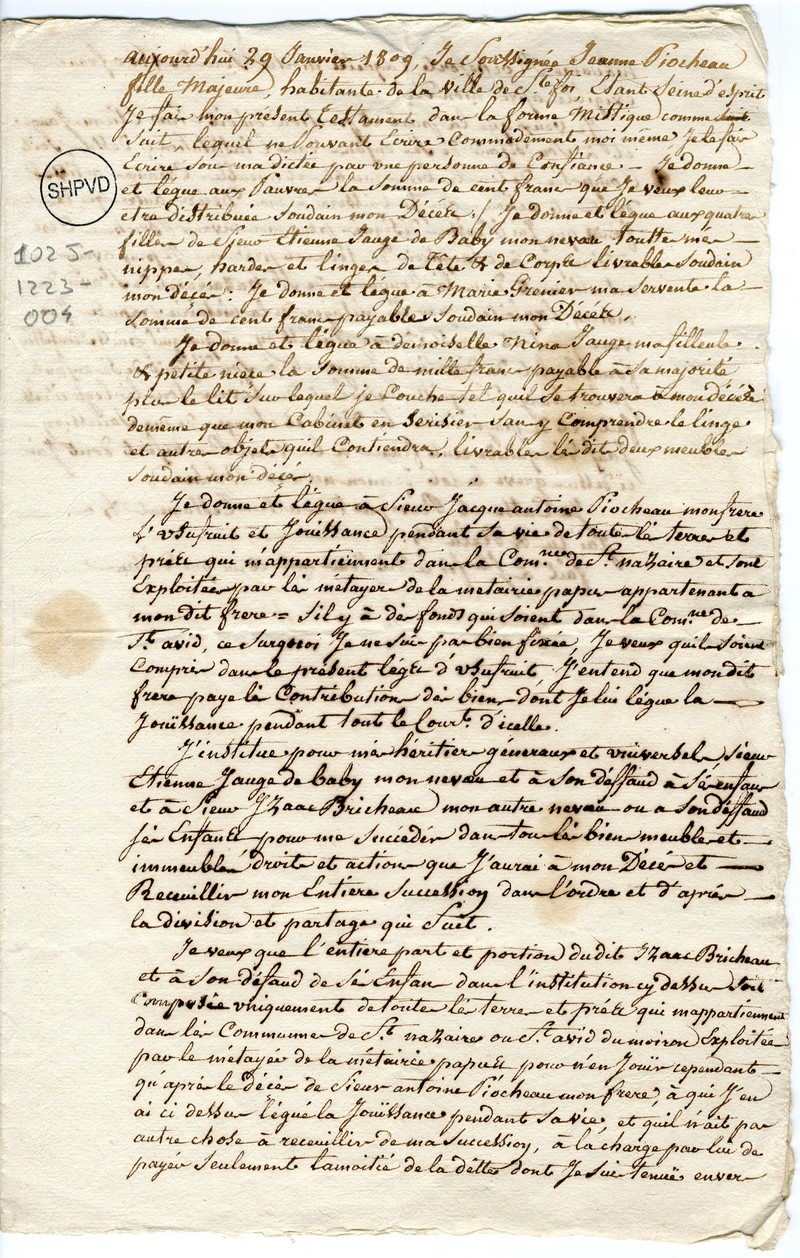 aujourd'hui 29 Janvier 1809, Je Soussignée Jeanne Piocheau
fille Majeure, habitante de la ville de Ste foi, Etant Seine d'esprit
Je fai mon présent Testament dans la forme Mistique comme
Suit, lequel ne Pouvant Ecrire Commodement moi même Je le fai
Ecrire Sou ma dictée par une personne de Confiance. Je donne
et légue aux Pauvre la Somme de cent franc que Je veux leur
etre distribuée Soudain mon Décéz ./ Je donne et légue aux quatre
filles de Sieur Etienne Jauge de Baby mon neveu toutte mes
nippes, hardes et linges de Tête & de Corps livrables Soudain
mon décés : Je donne et légue à Marie Grenier ma Servente la
Somme de cent franc payable Soudain mon Décéz,
Je donne et légue à demoiselle Nina Jauge ma filleule
& petite niece la Somme de mille franc payable à Sa majorité
plus le lit Sur lequel je Couche tel quil Se trouvera à mon décéz
demême que mon Cabinet en Serisier San y Comprendre le linge
et autre objets qu'il Contiendra, livrables lé dit deux meubles
Soudain mon décés.
Je donne et légue à Sieur Jacque antoine Piocheau mon frere
L'Usufruit et Jouissance pendant Sa vie de toute lé terre et
préz qui m'appartiennent dans la Comne de St nazaire et Sont
Exploitées par lé métayer de la metairie papus appartenant a
mon dit frere = Sil y à dés fonds qui Soient dans la Comne de
St. avid, ce Surquoi Je ne Sui pas bien fixée, Je veux quil Soient
Compris dans le présent légs d'Usufruit. J'entend que mon dit
frere paye lés Contributions dés biens dont Je lui légue la
Jouissance pendant tout le Cours d'icelle.
J'institue pour més héritiers généraux et universels Sieur
Etienne Jauge de baby mon neveu et à Son déffaud à Sés enfans
et à Sieur Izaac Bricheau mon autre neveu ou a Son déffaud
Sés Enfants pour me Succéder dans tou lés bien meubles et
immeublés droits et actions que J'aurai à mon Décés et
Receuillir mon Entiere Succession dans l'ordre et d'aprés
la division et partage qui Suit.
Je veux que l'entiere part et portion du dit Izaac Bricheau
et à Son défaud de Sés Enfans dans l'institution cy dessus Soit
Composée uniquement de toute lés terre et préz qui m'appartiennent
dans lés Commune de St. nazaire ou St. avid du moiron Exploitées
par le métayer de la métairie papus pour n'en Jouir cependant
qu'aprés le décés de Sieur antoine Piocheau mon frere, à qui J'en
ai ci dessus légué la Jouissance pendant Sa vie, et quil n'ait pas
autre chose à receuillir de ma Succession, à la charge par lui de
payer Seulement la moitié de la dêtte dont Je Sui tenüe envers
SHPVD
1025-
1223-
004